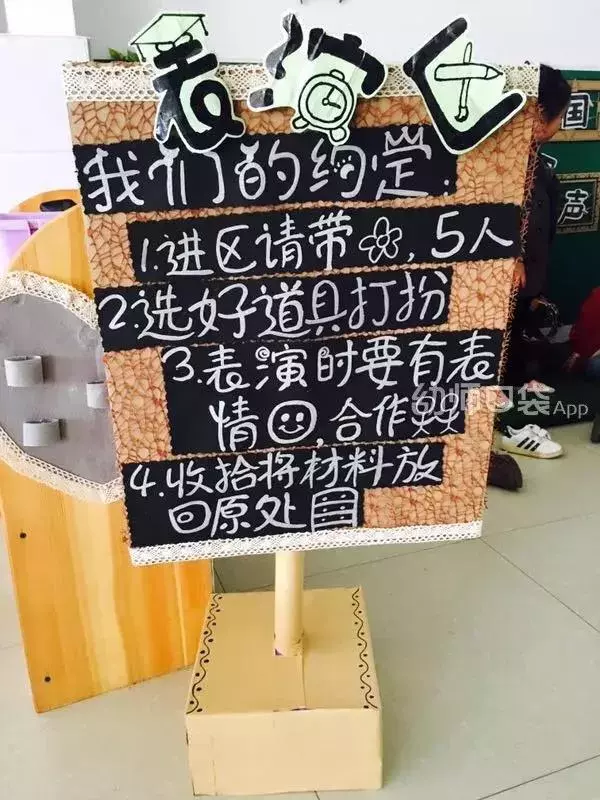 表演区
我们的约定:
1.进区请带,5人
2.选好道具打扮
3.表演时要有表
情,合作
4.收拾将材料放
回原处
国
声
幼师口袋App